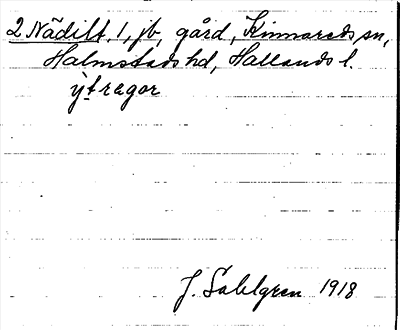 2 Nädilt, 1, jb, gård, Kinnareds sn,
Halmstads hd, Hallands l.
ỳtregor
J. Sahlgren 1918